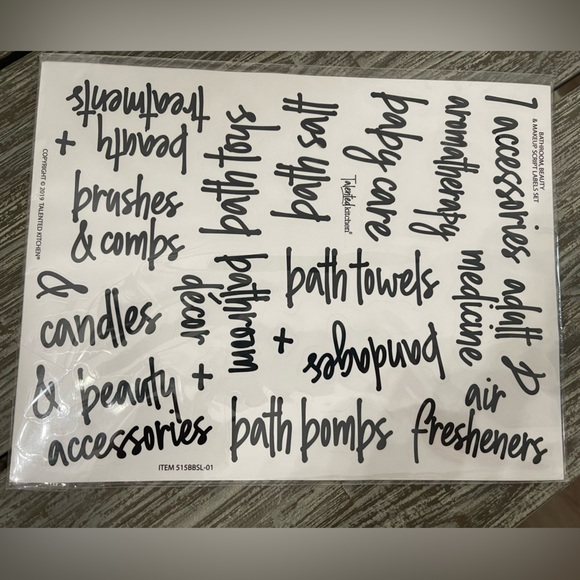 BATHROOM, BEAUTY
& MAKEUP SCRIPT LABELS SET
accessories
adult
aromatherapy
medicine
baby care
Talented Kitchen®
bath salt
bath shots
bathroom
décor
+
beauty
treatments
+
brushes
& combs
&
candles
& beauty
accessories
+
bath towels
+
bandages
bath bombs
air
fresheners
ITEM 515BBSL-01
COPYRIGHT © 2019 TALENTED KITCHEN®